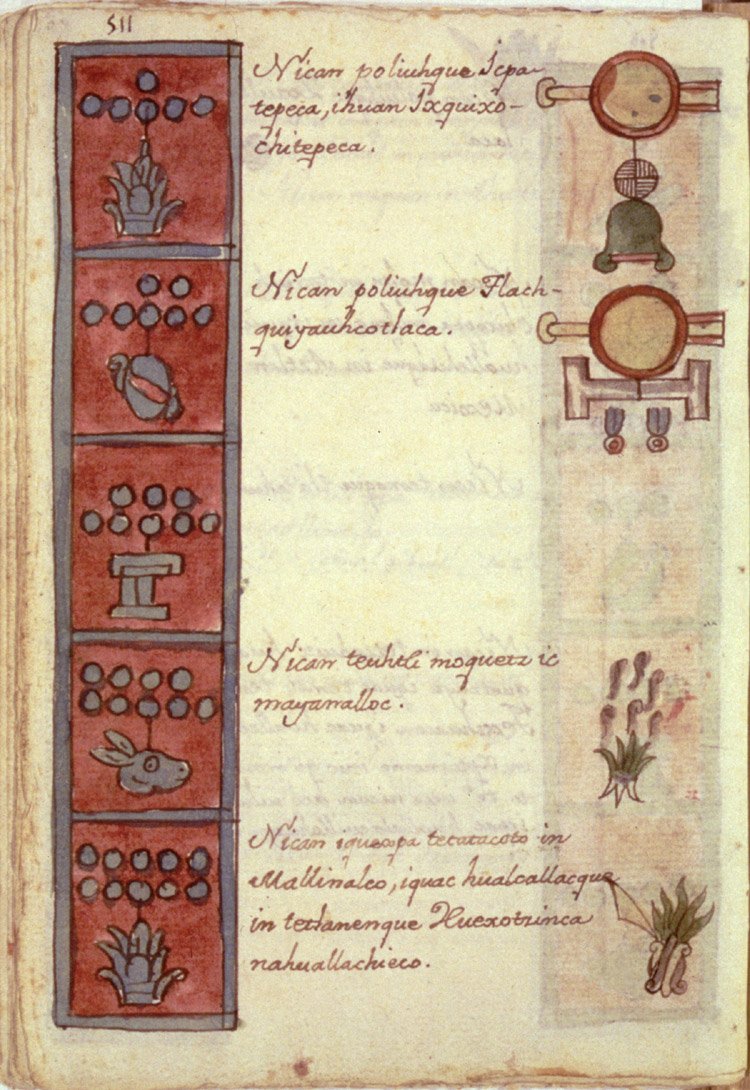 Nican poliuhque Icpa-
tepeca, ihuan Ixquixo-
chitepeca.
Nican poliuhque Tlach-
quiyauhcotlaca.
Nican teuhtli moquetz ic
mayanalloc.
Nican iquexpa tecatacoto in
Mallinalco, iquac hualcallacque
in tetlanenque Huexotzinca
nahuallachieco.